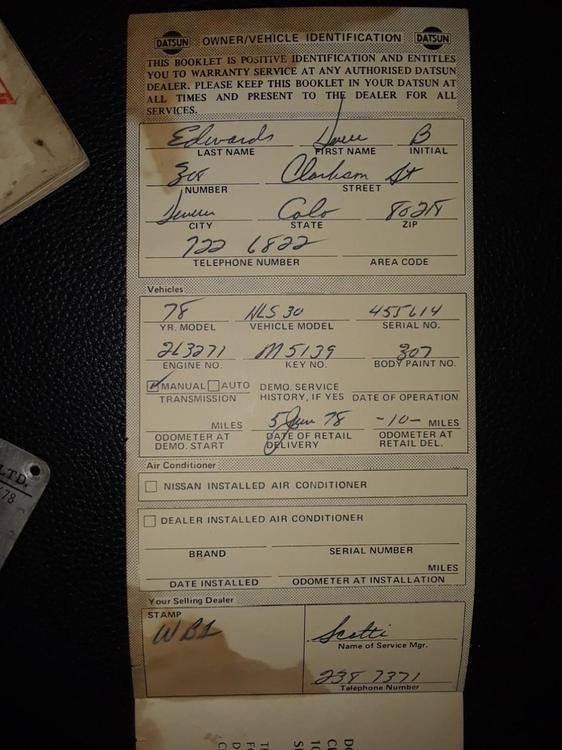 DATSUN OWNER/VEHICLE IDENTIFICATION DATSUN
THIS BOOKLET IS POSITIVE IDENTIFICATION AND ENTITLES
YOU TO WARRANTY SERVICE AT ANY AUTHORISED DATSUN
DEALER. PLEASE KEEP THIS BOOKLET IN YOUR DATSUN AT
ALL TIMES AND PRESENT TO THE DEALER FOR ALL
SERVICES.
Edwards B
LAST NAME FIRST NAME INITIAL
Clarkson St
NUMBER STREET
Colo
CITY STATE ZIP
722 6822
TELEPHONE NUMBER AREA CODE
Vehicles
78 HLS 30 455614
YR. MODEL VEHICLE MODEL SERIAL NO.
263271 M5139 307
ENGINE NO. KEY NO. BODY PAINT NO.
MANUAL AUTO DEMO. SERVICE
TRANSMISSION HISTORY, IF YES DATE OF OPERATION
MILES 5 Jun 78 -10- MILES
ODOMETER AT DATE OF RETAIL ODOMETER AT
DEMO. START DELIVERY RETAIL DEL.
Air Conditioner
NISSAN INSTALLED AIR CONDITIONER
DEALER INSTALLED AIR CONDITIONER
BRAND SERIAL NUMBER
MILES
DATE INSTALLED ODOMETER AT INSTALLATION
Your Selling Dealer
STAMP
Name of Service Mgr.
238 7371
Telephone Number
LTD.